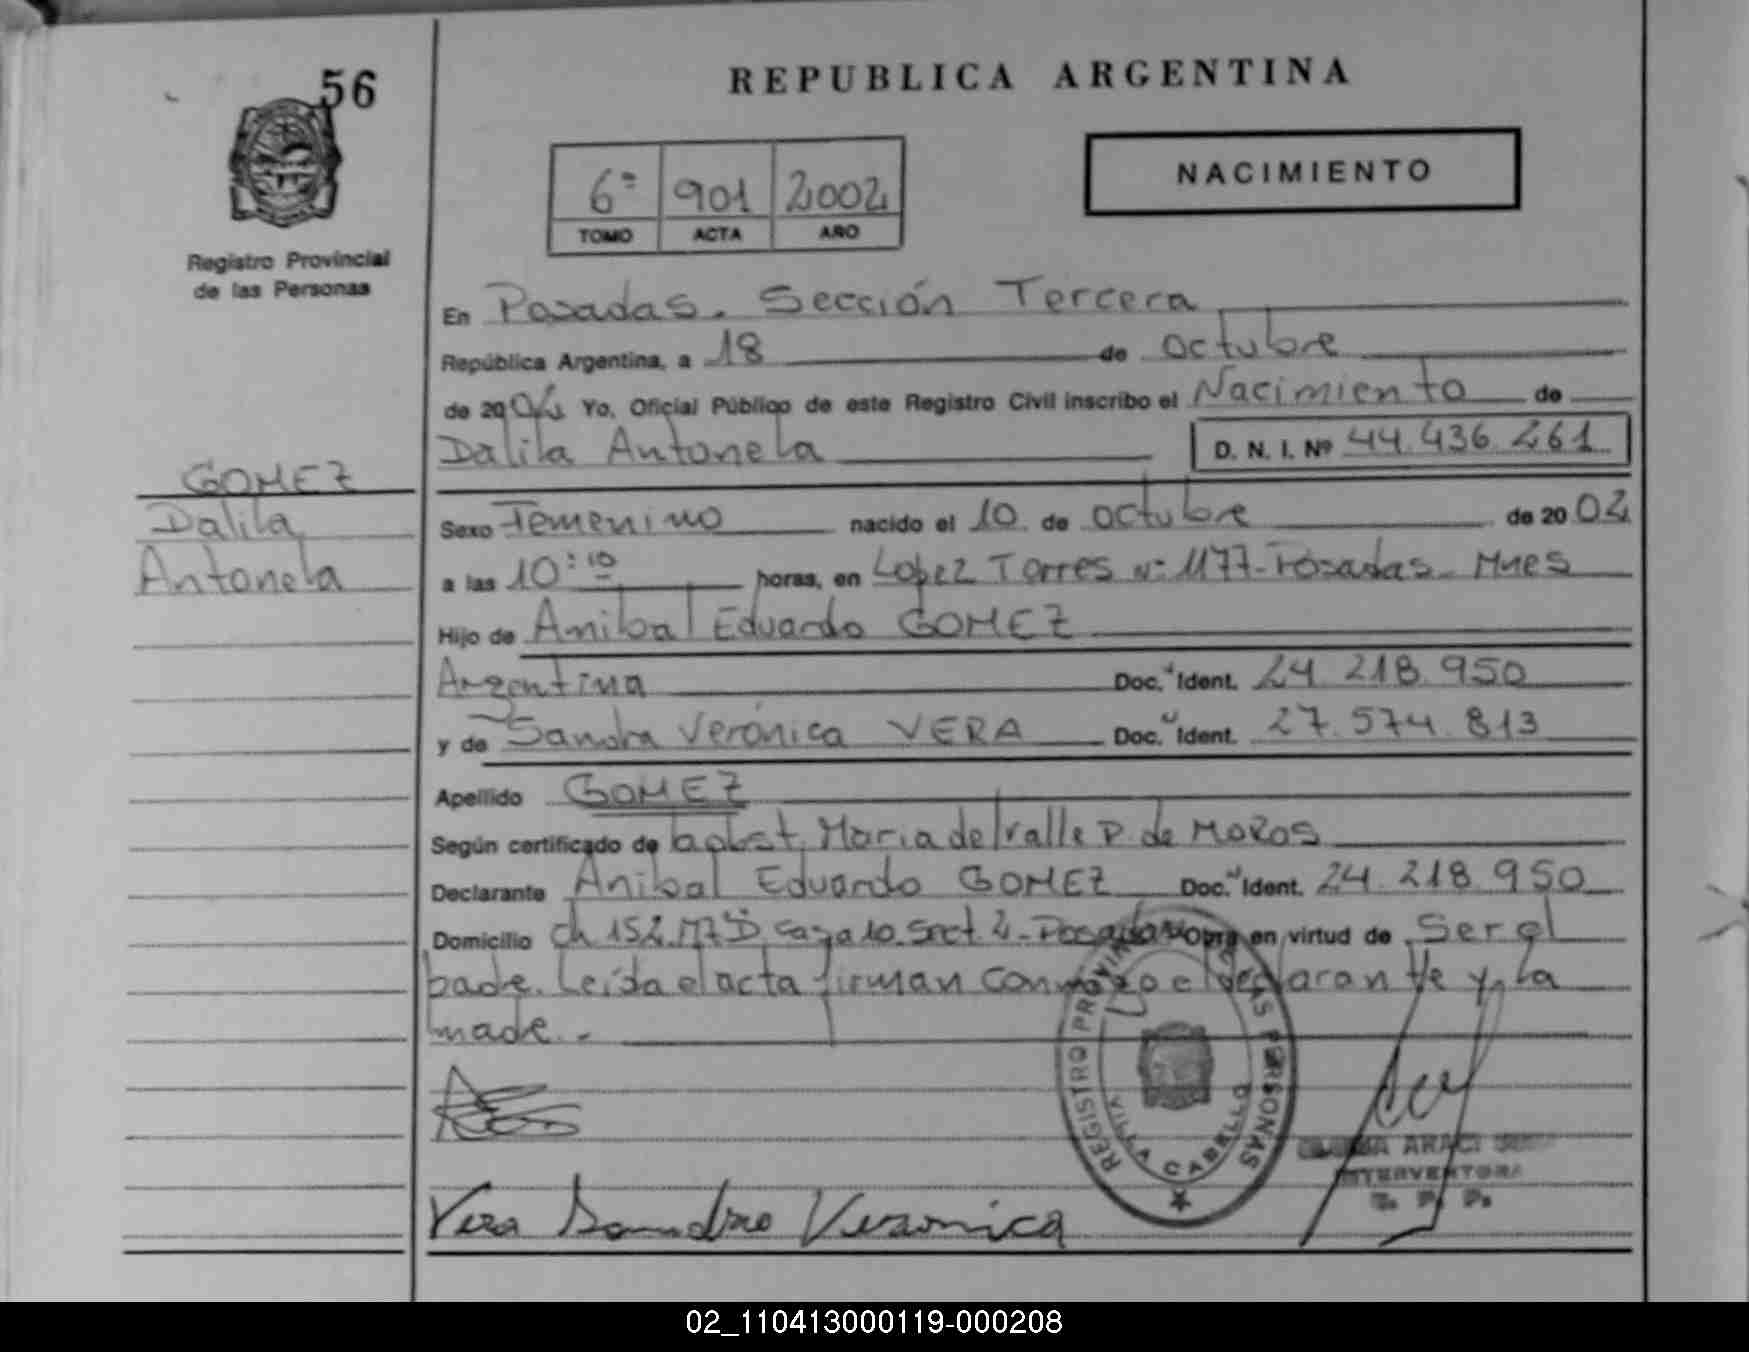 56
REPUBLICA ARGENTINA
NACIMIENTO
6º 901 2002
TOMO ACTA AÑO
Registro Provincial
de las Personas
En Posadas. Sección Tercera
República Argentina, a 18 de octubre
de 2002 Yo, Oficial Público de este Registro Civil inscribo el Nacimiento de
Dalila Antonela D. N. I. Nº 44.436.261
GOMEZ
Dalila
Antonela
Sexo Femenino nacido el 10 de octubre de 2002
a las 10:10 horas, en Lopez Torres Nº 1177-Posadas-Mnes
Hijo de Anibal Eduardo GOMEZ
Argentina Doc. Ident. 24.218.950
y de Sandra Verónica VERA Doc. Ident. 27.574.813
Apellido GOMEZ
Según certificado de obst. Maria del Valle P. de MOROS
Declarante Anibal Eduardo GOMEZ Doc. Ident. 24.218.950
Domicilio ch 152. casa 10. Sect. 2-Posadas Obra en virtud de Ser el
padre. Leída el acta firman conmigo el declarante y la
madre.-
REGISTRO PROVINCIAL DE LAS PERSONAS
VILLA CABELLO
ARACI
INTERVENTORA
R. P. P.
Vera Sandra Veronica
02_110413000119-000208